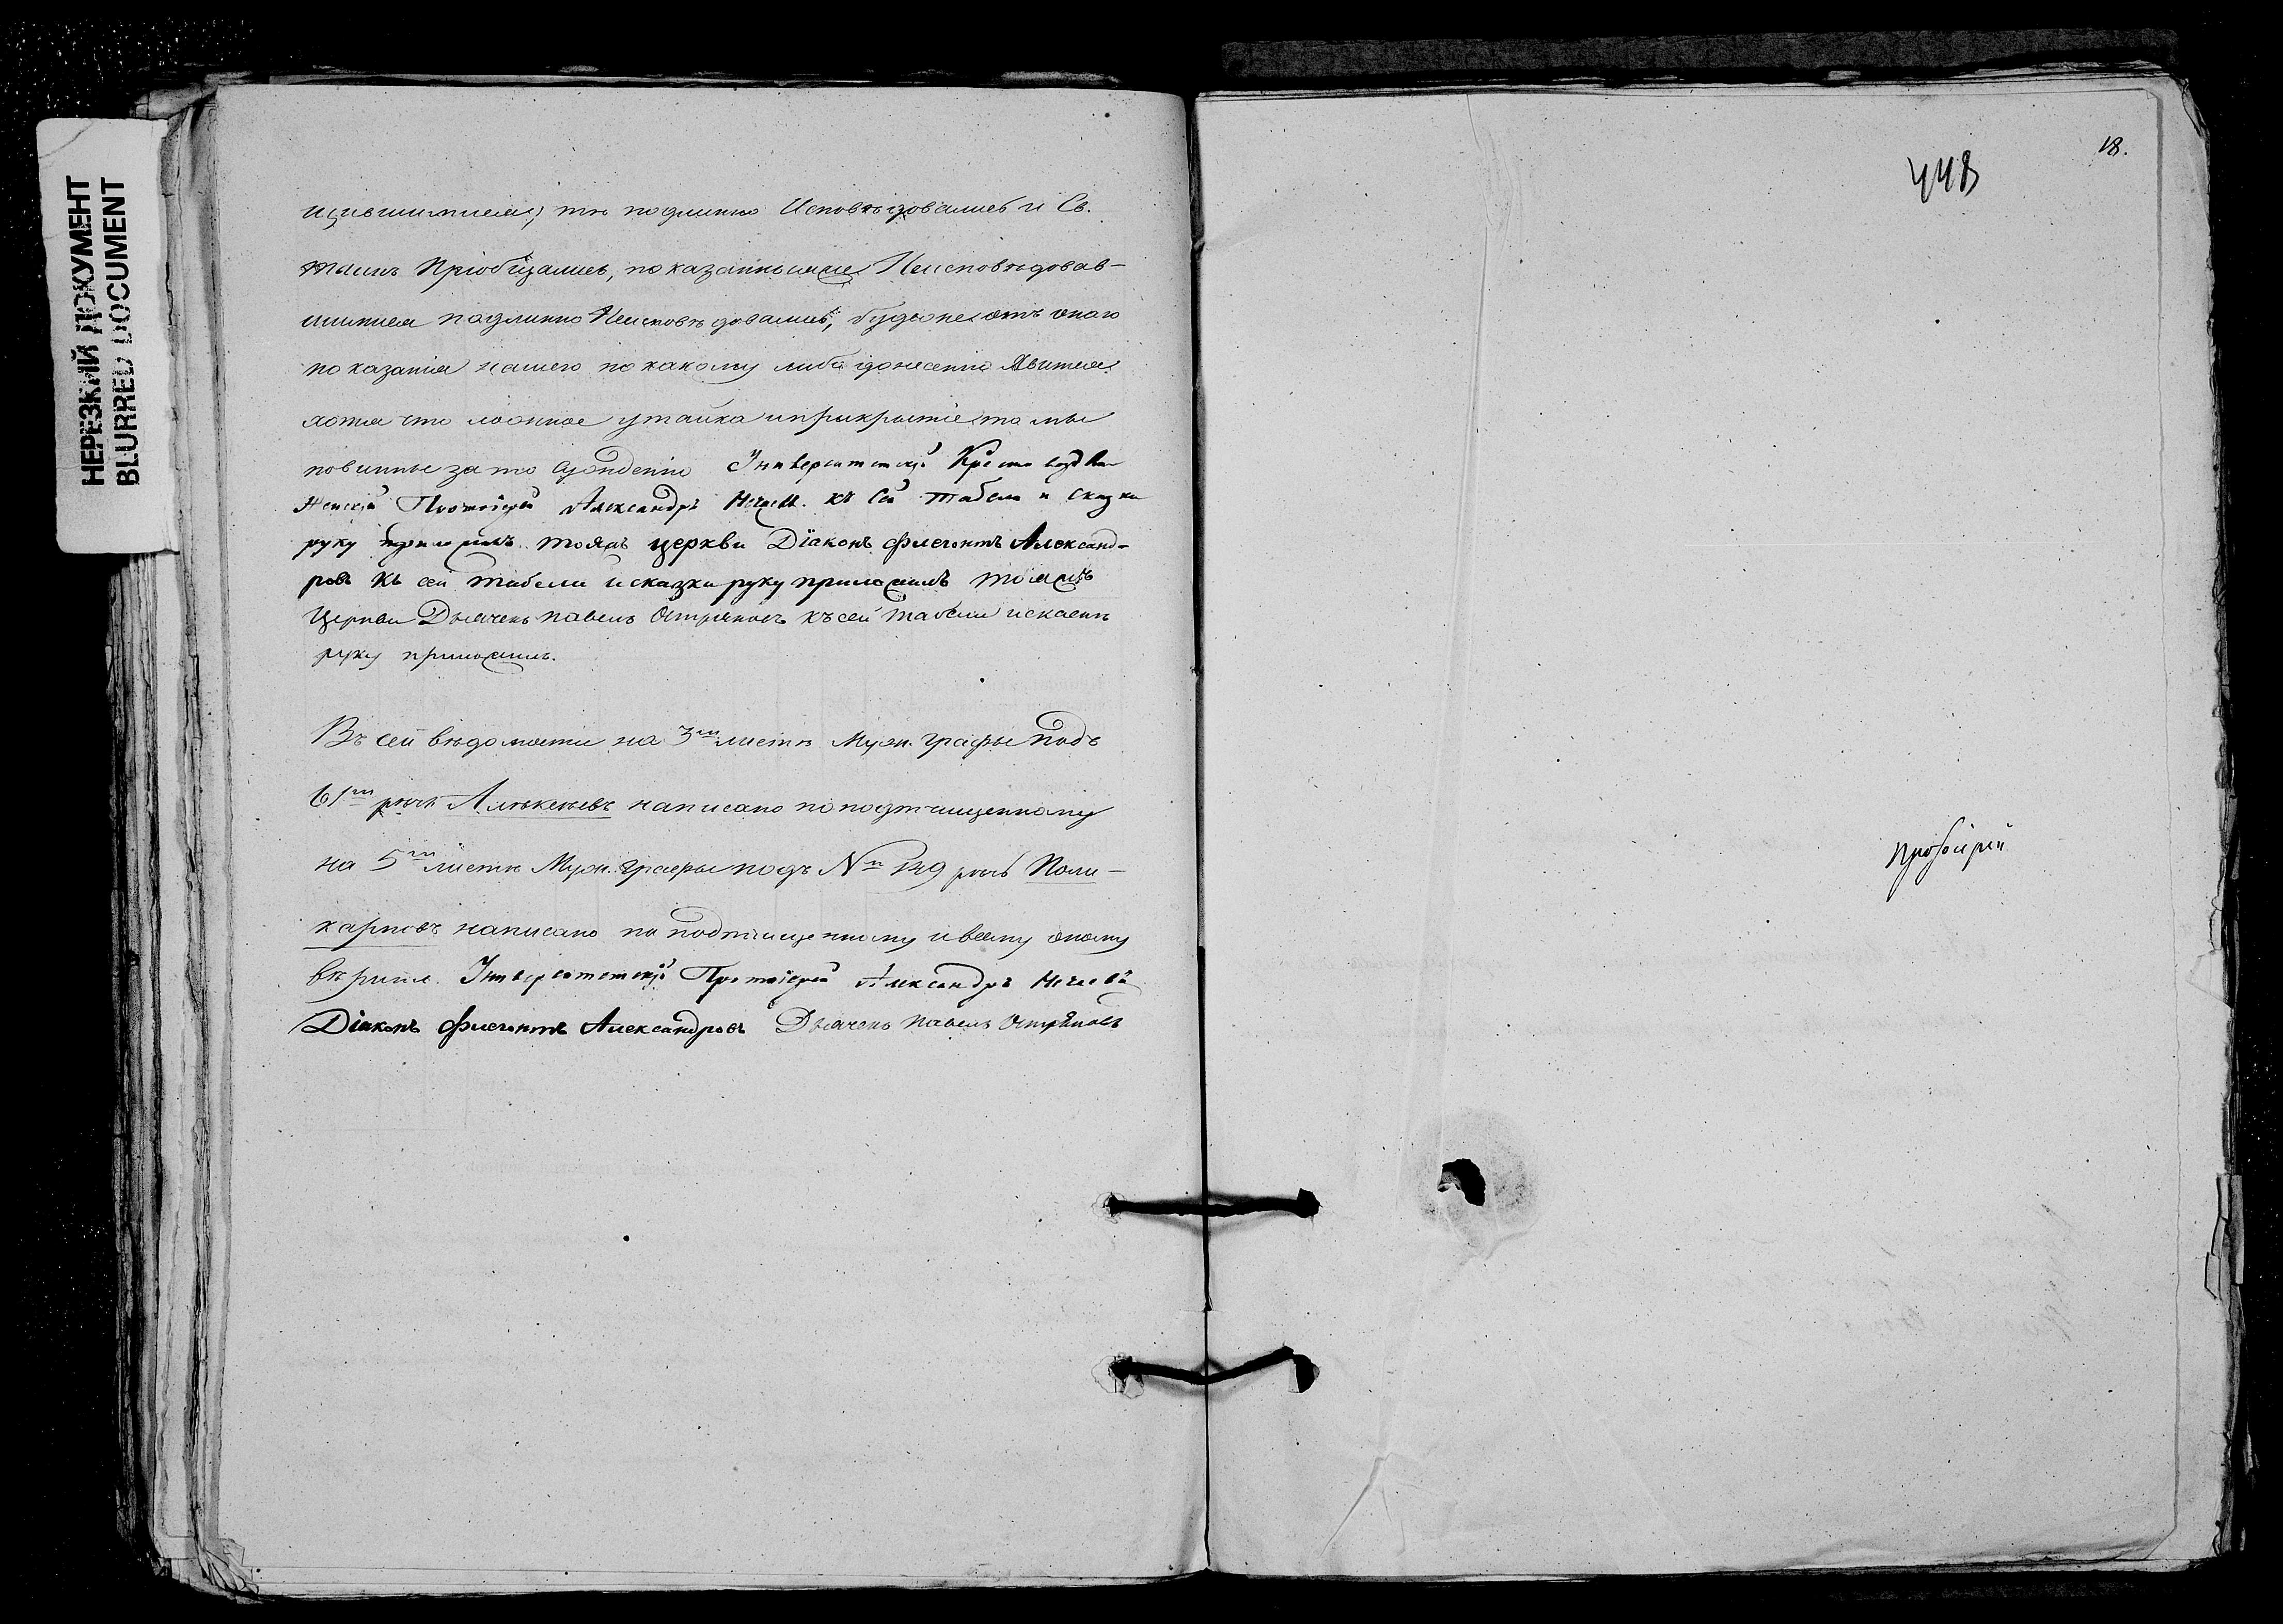 НЕРЕЗКИЙ ДОКУМЕНТ
BLURRED DOCUMENT
щившимися, тѣ подлинно Исповѣдовались и Св.
таинъ Пріобщались, показанныеже Неисповѣдовав-
шимися подлинно Неисповѣдовались, будеже отъ онаго
показанія нашего по какому либо донесенію Явится
хотя что ложное утайка и прикрытіе, то мы
повинны за то Сужденію Университетскій Кресто воздви
женскій Протоіерей Александръ Нечаевъ. къ Сей табели и Сказки
руку приложилъ. тояжъ церкви Діаконъ Флегонтъ Александ-
ровъ къ сей табели и сказки руку приложилъ тояжъ
Церкви Дьячекъ павелъ къ сей табели и скаски
руку приложилъ.
Въ сей вѣдомости на 3мъ листѣ Муж. графы подъ
61мъ рѣчь написано по подтчищенному
на 5мъ листѣ Муж. графы подъ № 129 рѣчь Поли-
карповъ написано по подтчищенному и всему оному
вѣрить. Университетскій Протоіерей Александръ Нечаевъ
Діаконъ Флегонтъ Александровъ Дьячекъ павелъ
18.
448
протоіерей